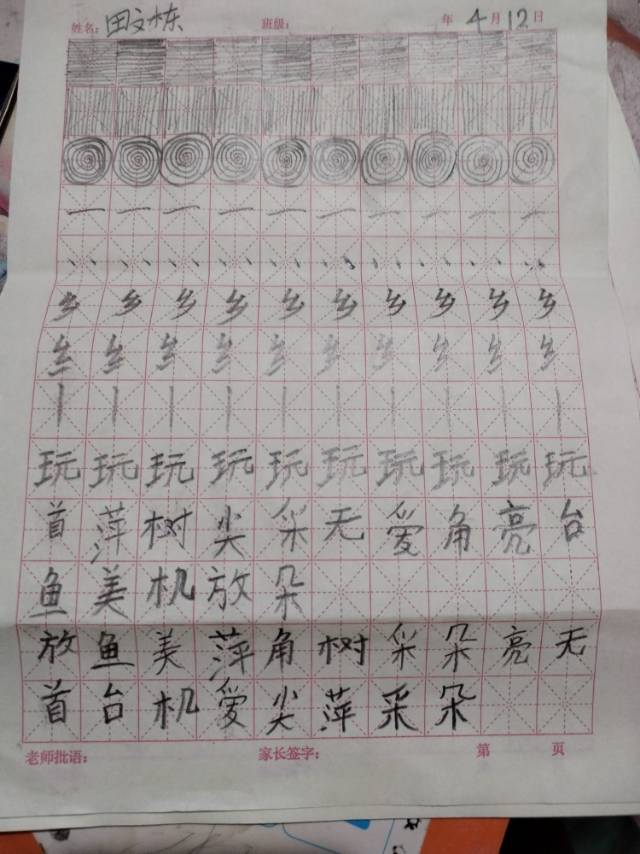 姓名：田文栋 班级： 年 4月12日
一 一 一 一 一 一 一 一 一 一
乡 乡 乡 乡 乡 乡 乡 乡 乡 乡
丨 丨 丨 丨 丨 丨 丨 丨 丨 丨
玩 玩 玩 玩 玩 玩 玩 玩 玩 玩
首 萍 树 尖 采 无 爱 角 亮 台
鱼 美 机 放 朵
放 鱼 美 萍 角 树 采 朵 亮 无
首 台 机 爱 尖 萍 采 朵
老师批语： 家长签字： 第 页